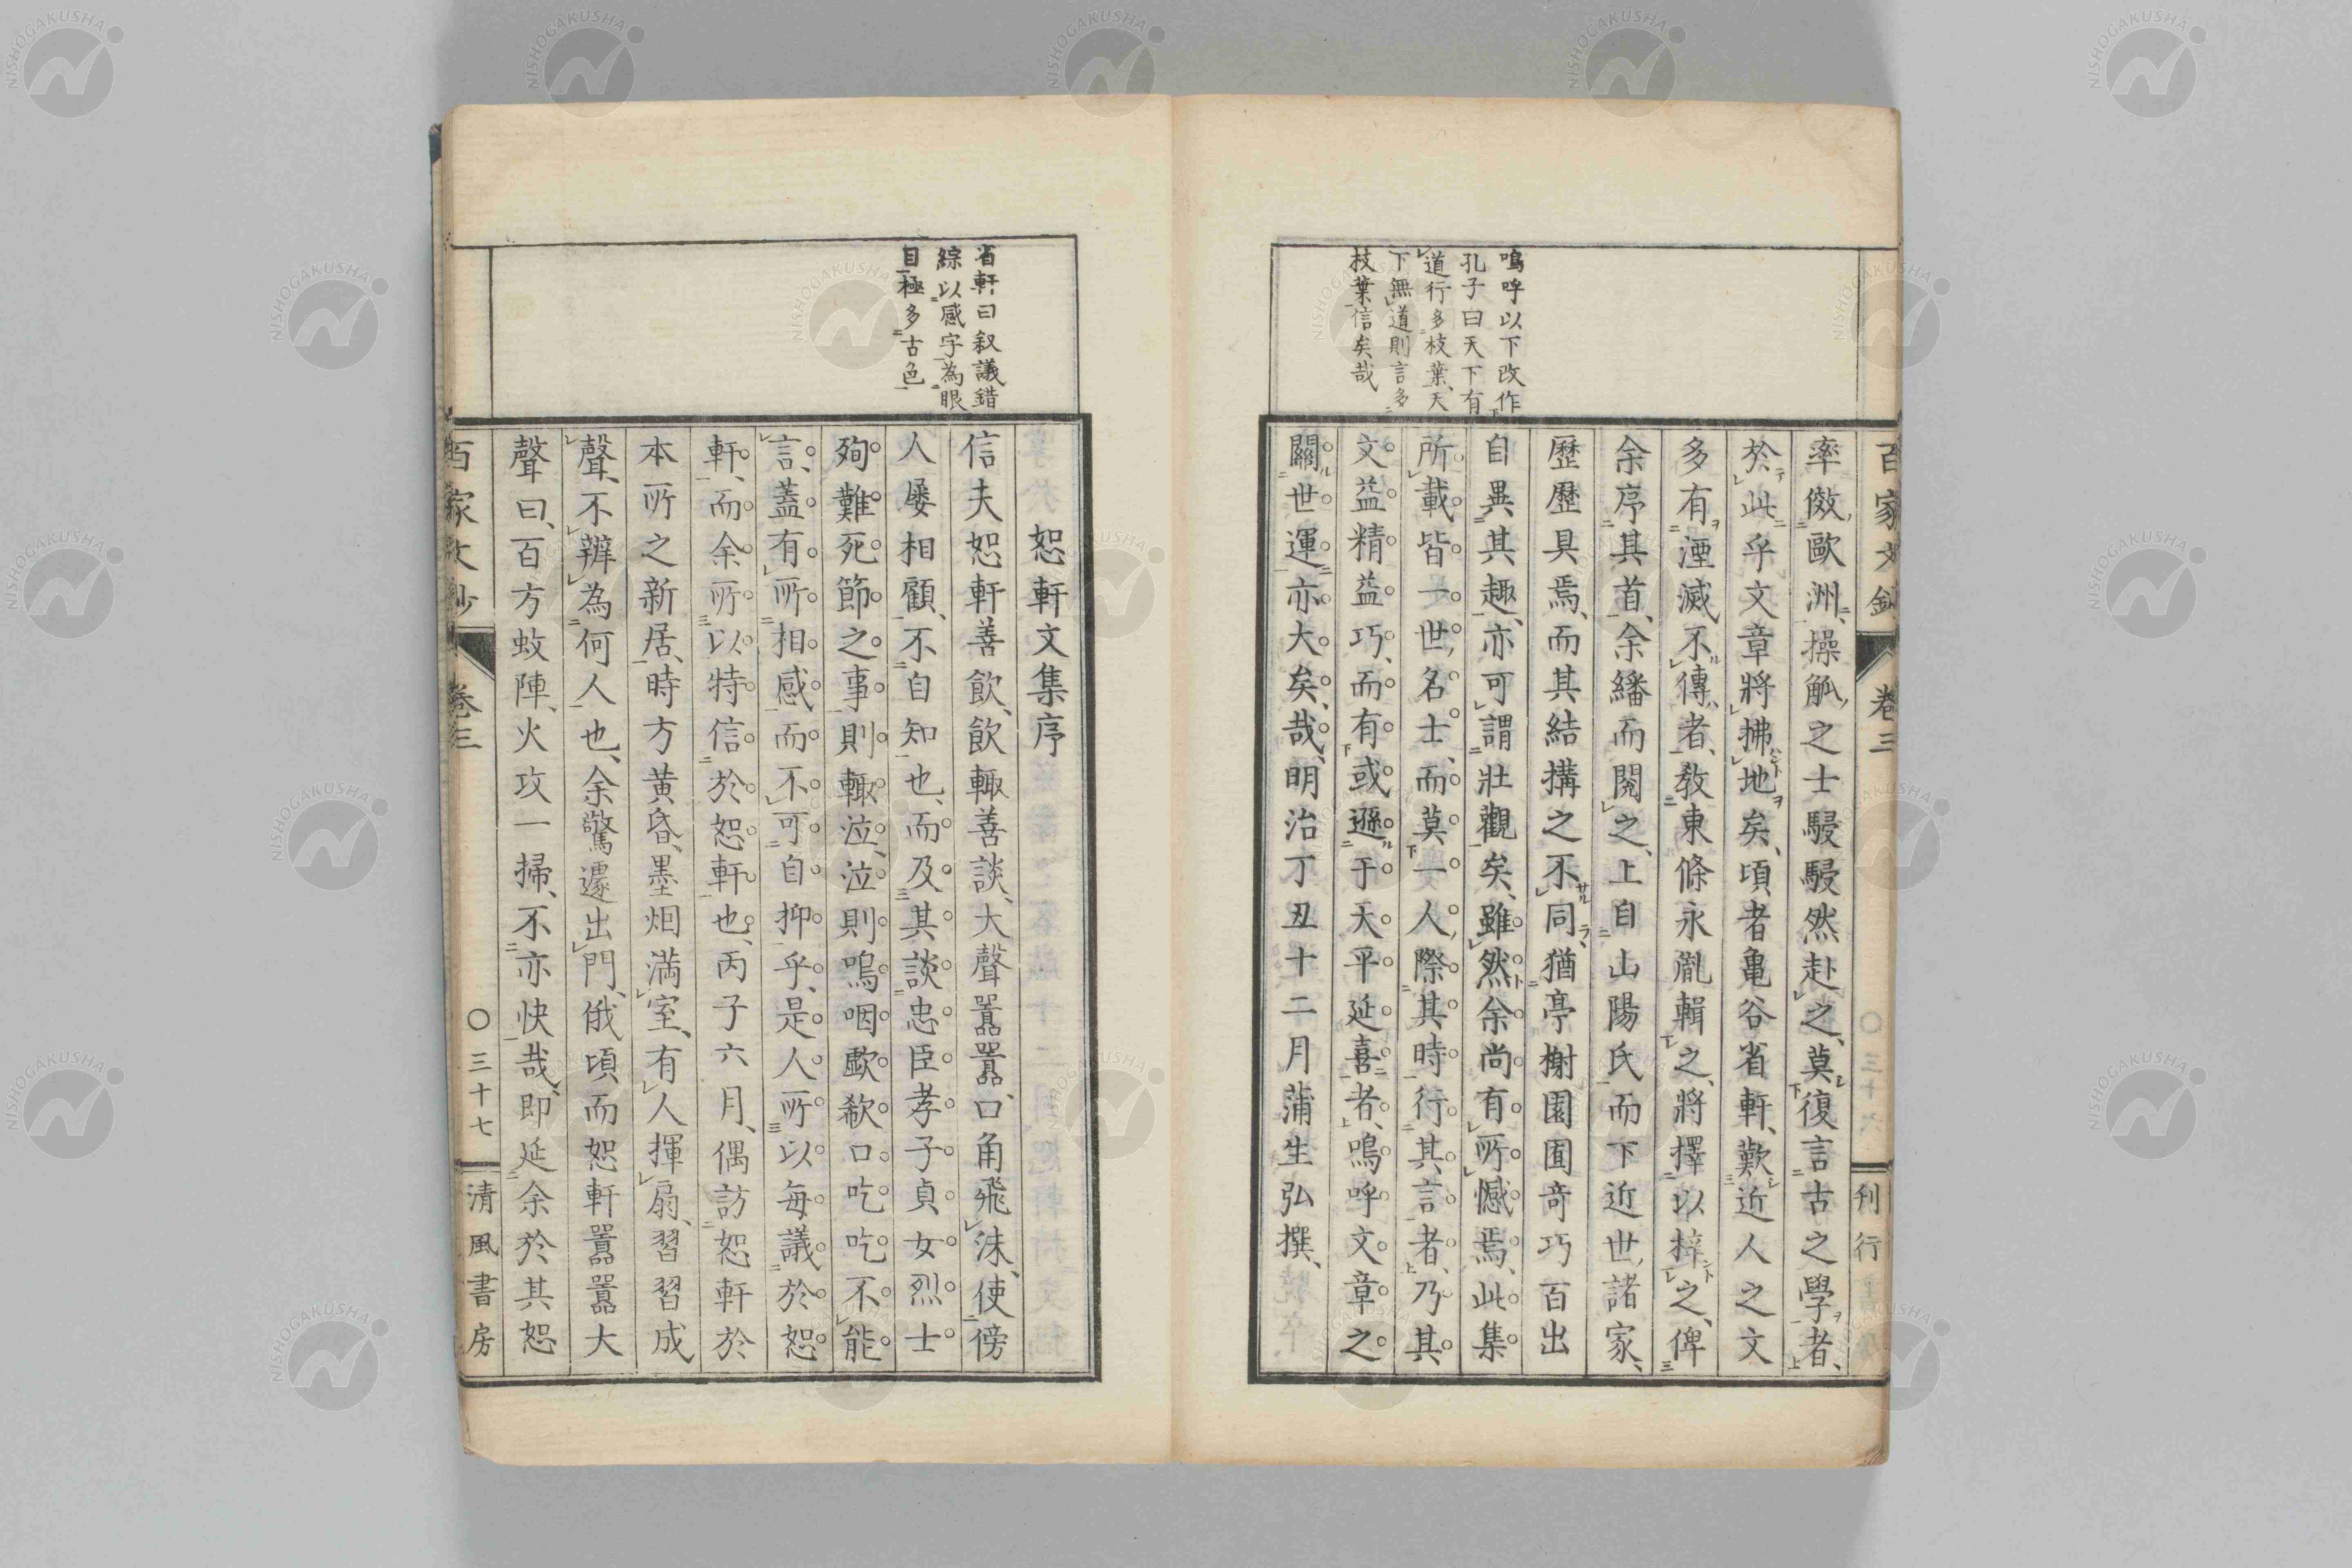 百家文鈔
卷三
刊行
嗚呼以下改作
孔子曰天下有
道行多枝葉、天
下無道則言多
枝葉信矣哉
率倣歐洲、操觚之士駸駸然赴之、莫復言古之學者、
於此乎文章將拂地矣、頃者亀谷省軒、歎近人之文
多有湮滅不傳者、敎東條永胤輯之、將擇以梓之、俾
余序其首、余繙而閱之、上自山陽氏而下近世、諸家、
歷歷具焉、而其結搆之不同、猶亭榭園囿奇巧百出
自異其趣、亦可謂壯觀矣、雖然余尚有所憾焉、此集
所載皆一世名士、而莫一人、際其時行其言者、乃其
文益精益巧、而有或遜于天平延喜者、嗚呼文章之
關世運亦大矣哉、明治丁丑十二月蒲生弘撰、
省軒曰叙議錯
綜以感字為眼
目極多古色
恕軒文集序
信夫恕軒善飮、飮輙善談、大聲囂囂、口角飛沫、使傍
人屡相顧、不自知也、而及其談忠臣孝子貞女烈士
殉難死節之事、則輙泣、泣則嗚咽歔欷口吃吃不能
言、蓋有所相感而不可自抑乎、是人所以每議於恕
軒、而余所以特信於恕軒也、丙子六月、偶訪恕軒於
本所之新居、時方黄昏、墨烟満室、有人揮扇、習習成
聲、不辨為何人也、余驚遽出門、俄頃而恕軒囂囂大
聲曰、百方蚊陣、火攻一掃、不亦快哉、即延余於其恕
百家文鈔
卷三
〇三十七
清風書房